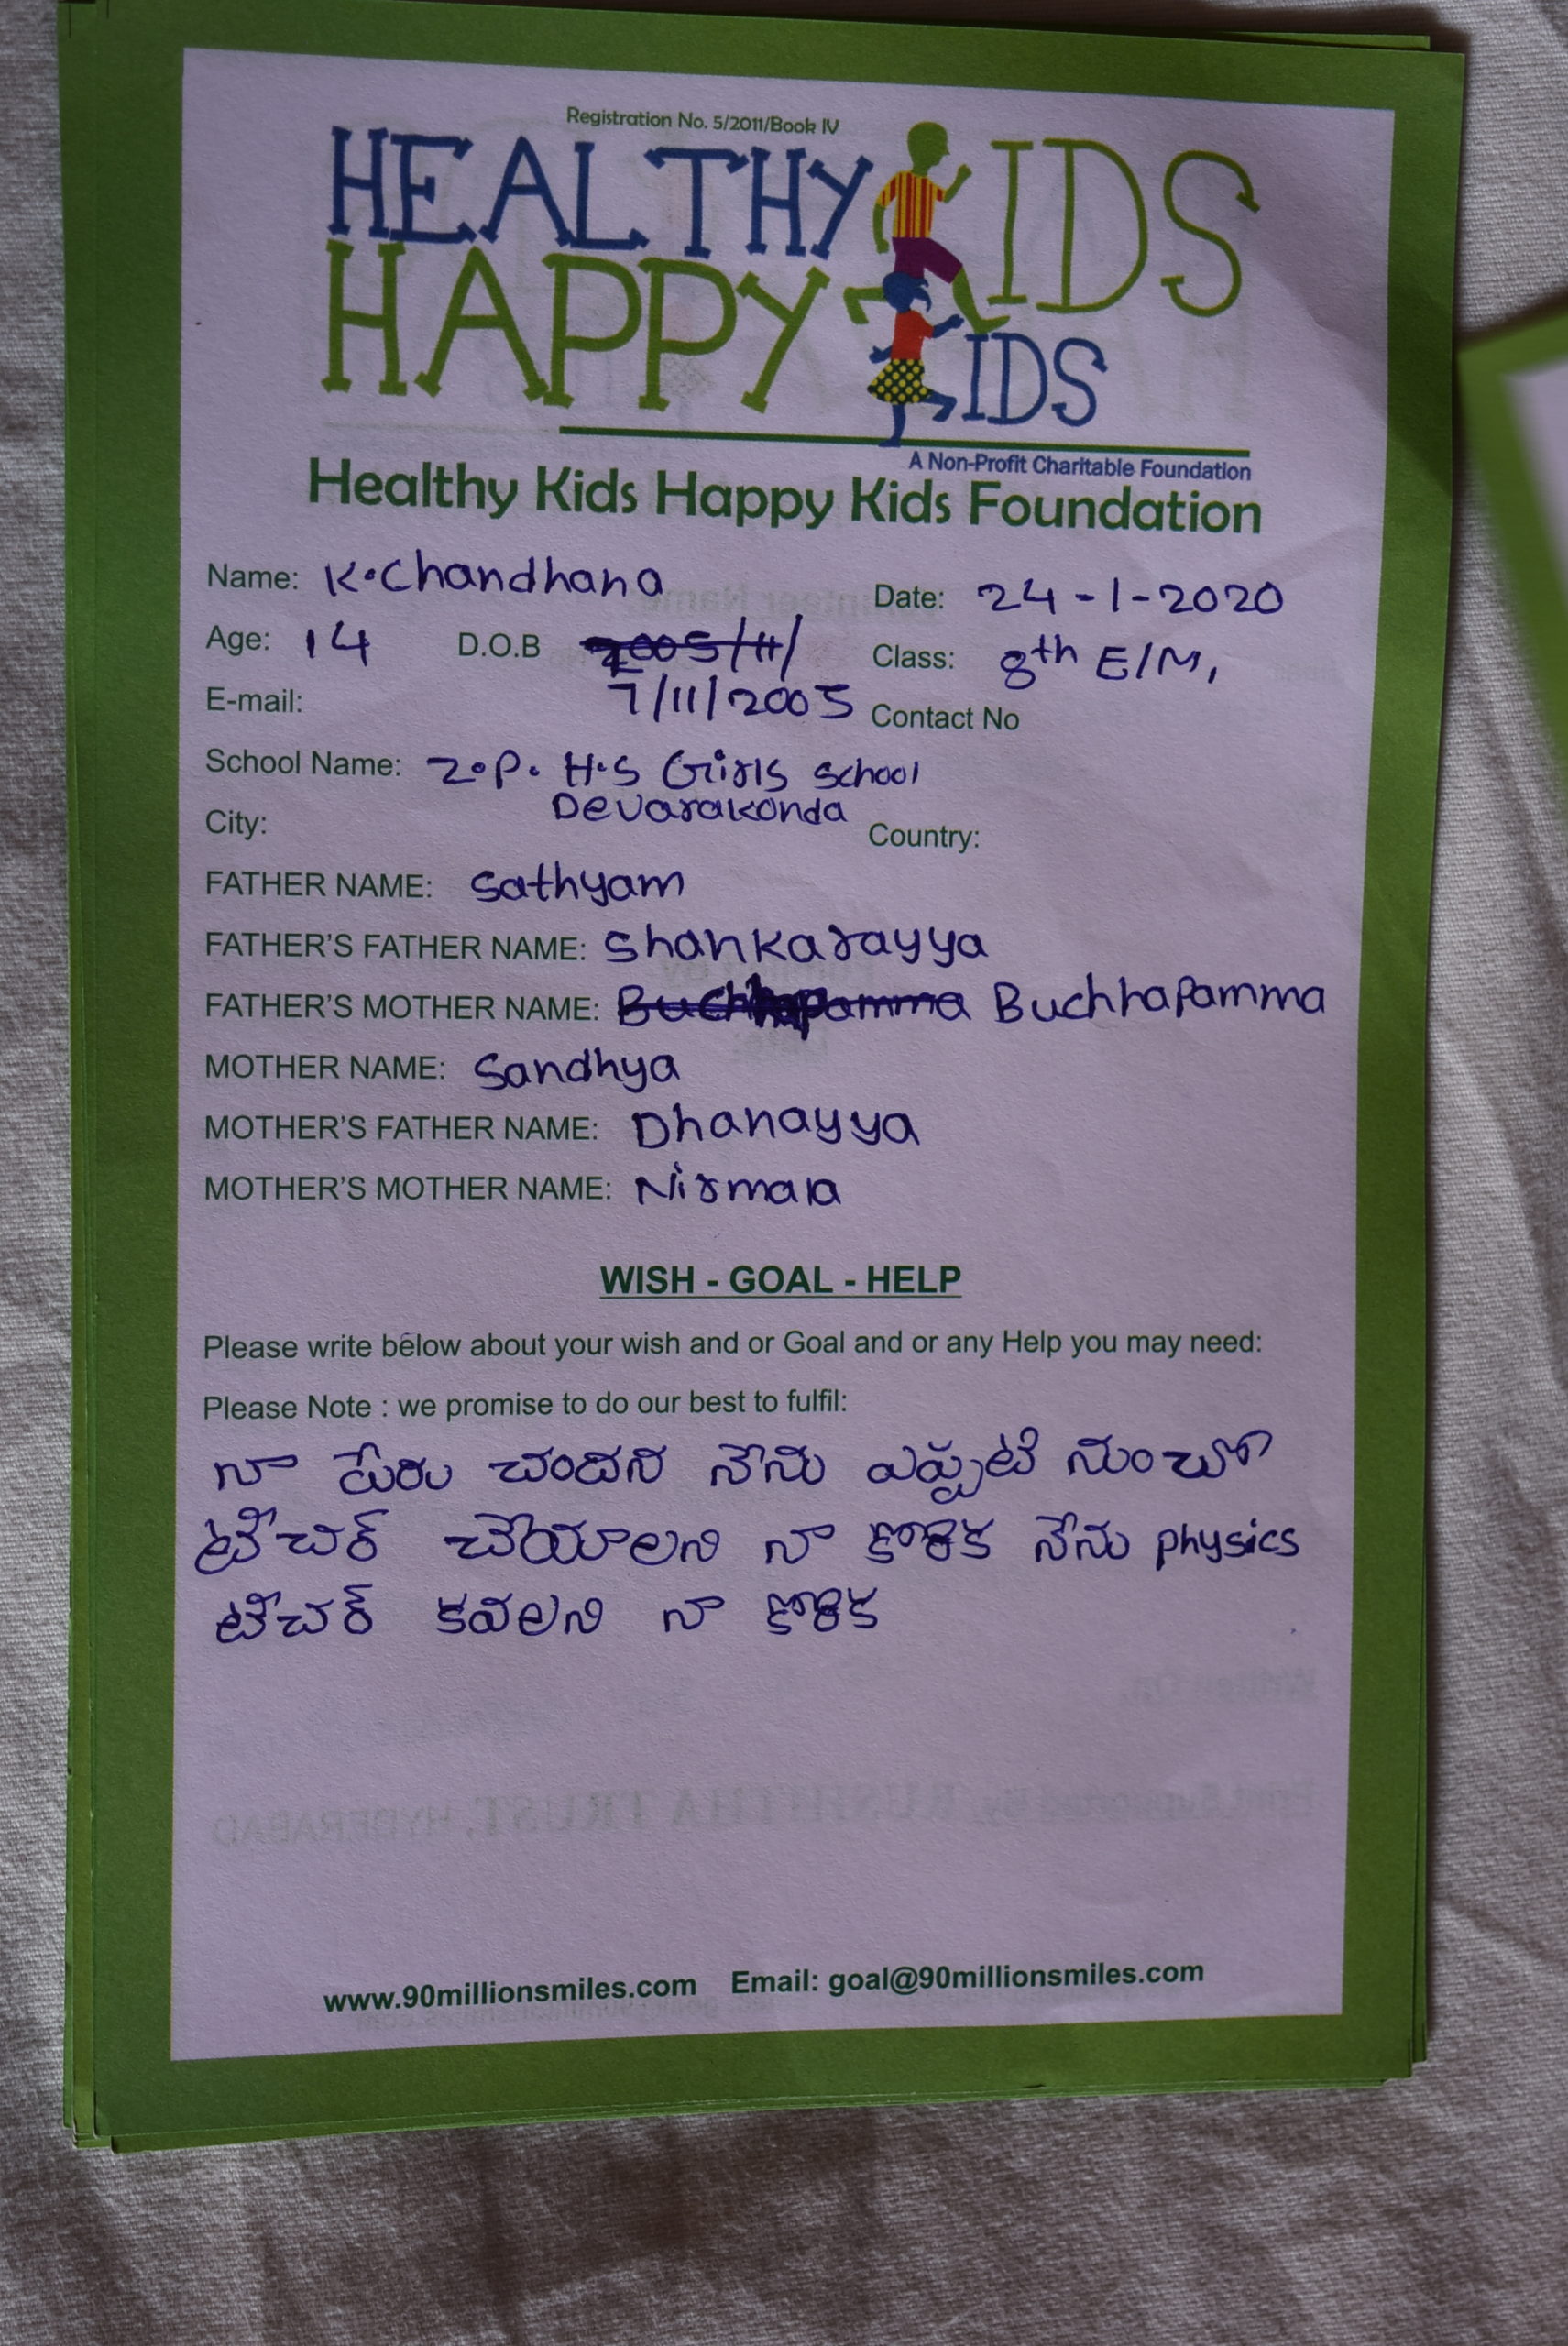 Registration No. 5/2011/Book IV
HEALTHY KIDS
HAPPY KIDS
A Non-Profit Charitable Foundation
Healthy Kids Happy Kids Foundation
Name: K.Chandhana Date: 24-1-2020
Age: 14 D.O.B 2005/11/ Class: 8th E/M,
E-mail: 7/11/2005 Contact No
School Name: Z.P. H.S Girls School
City: Devarakonda Country:
FATHER NAME: Sathyam
FATHER'S FATHER NAME: Shankarayya
FATHER'S MOTHER NAME: Buchhapamma
MOTHER NAME: Sandhya
MOTHER'S FATHER NAME: Dhanayya
MOTHER'S MOTHER NAME: Nirmala
WISH - GOAL - HELP
Please write below about your wish and or Goal and or any Help you may need:
Please Note : we promise to do our best to fulfil:
నా పేరు చందన నేను ఎప్పటి నుంచో
టీచర్ చేయాలని నా కోరిక నేను physics
టీచర్ కవలని నా కోరిక
www.90millionsmiles.com Email: goal@90millionsmiles.com